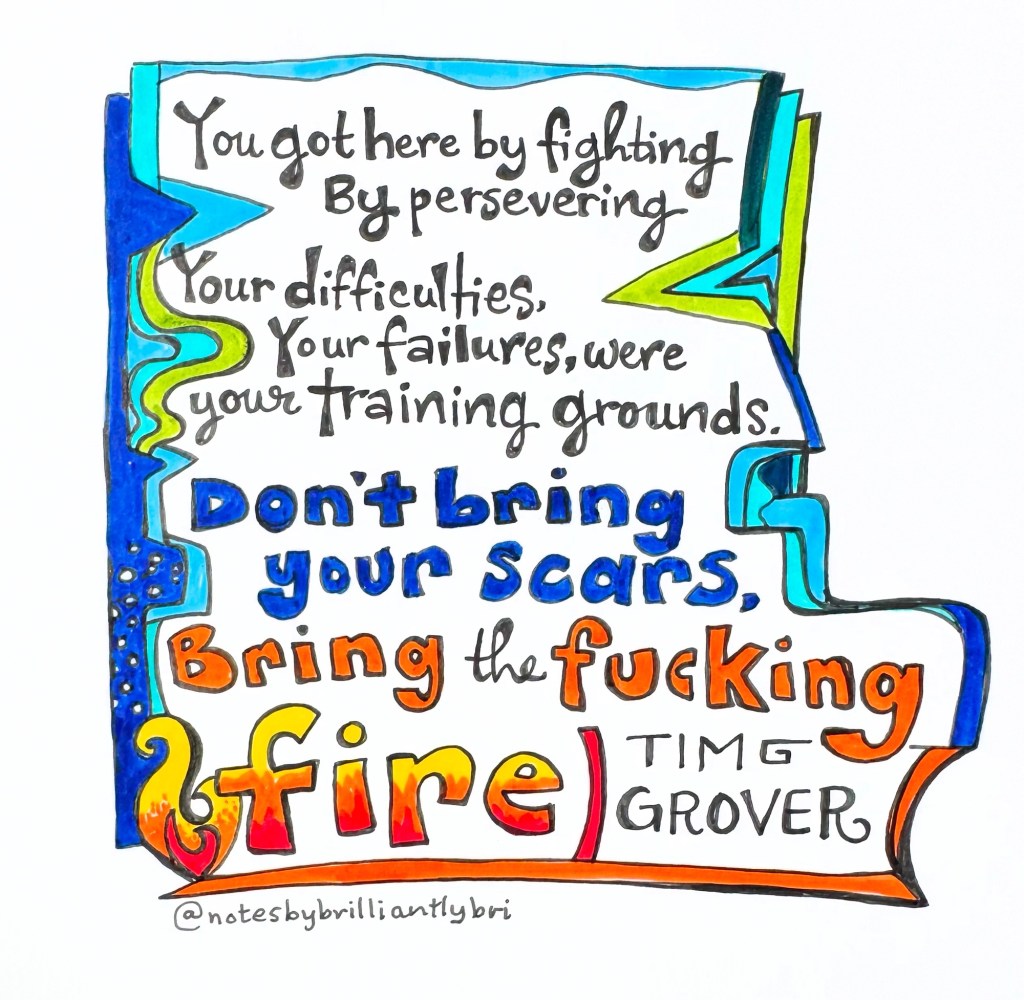 You got here by fighting
By persevering
Your difficulties,
Your failures, were
your training grounds.
Don't bring
your scars,
Bring the fucking
fire
TIM G
GROVER
@notesbybrilliantlybri